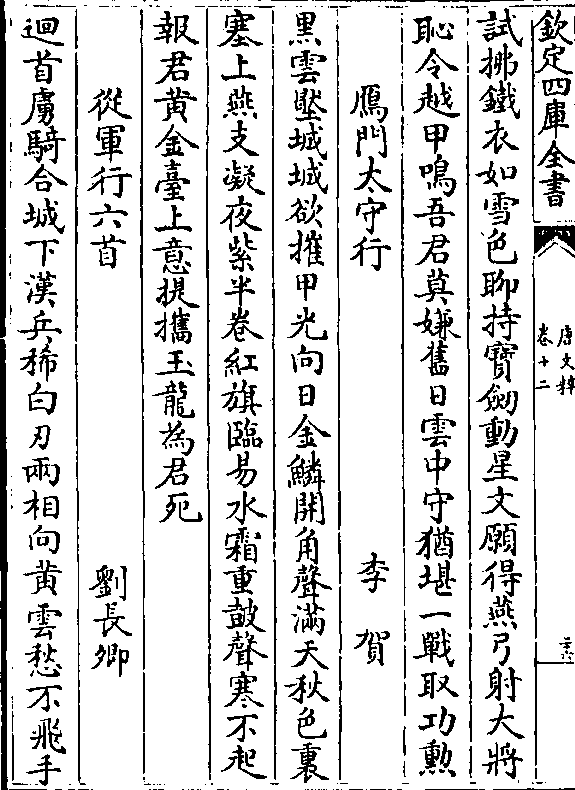 欽定四庫全書
唐文粹
卷十二
二六
試拂鐵衣如雪色聊持寶劔動星文願得燕弓射大將
恥令越甲鳴吾君莫嫌舊日雲中守猶堪一戰取功勲
鴈門太守行 李賀
黒雲壓城城欲摧甲光向日金鱗開角聲滿天秋色裏
塞上燕支凝夜紫半卷紅旗臨易水霜重鼓聲寒不起
報君黄金臺上意提攜玉龍為君死
從軍行六首 劉長卿
迴首虜騎合城下漢兵稀白刃兩相向黄雲愁不飛手